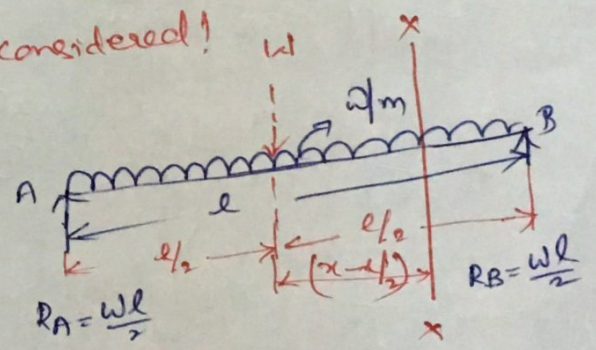 considered!
W
x
w/m
A
B
l
l/2
l/2
(x-l/2)
RA = wl/2
RB = wl/2
x